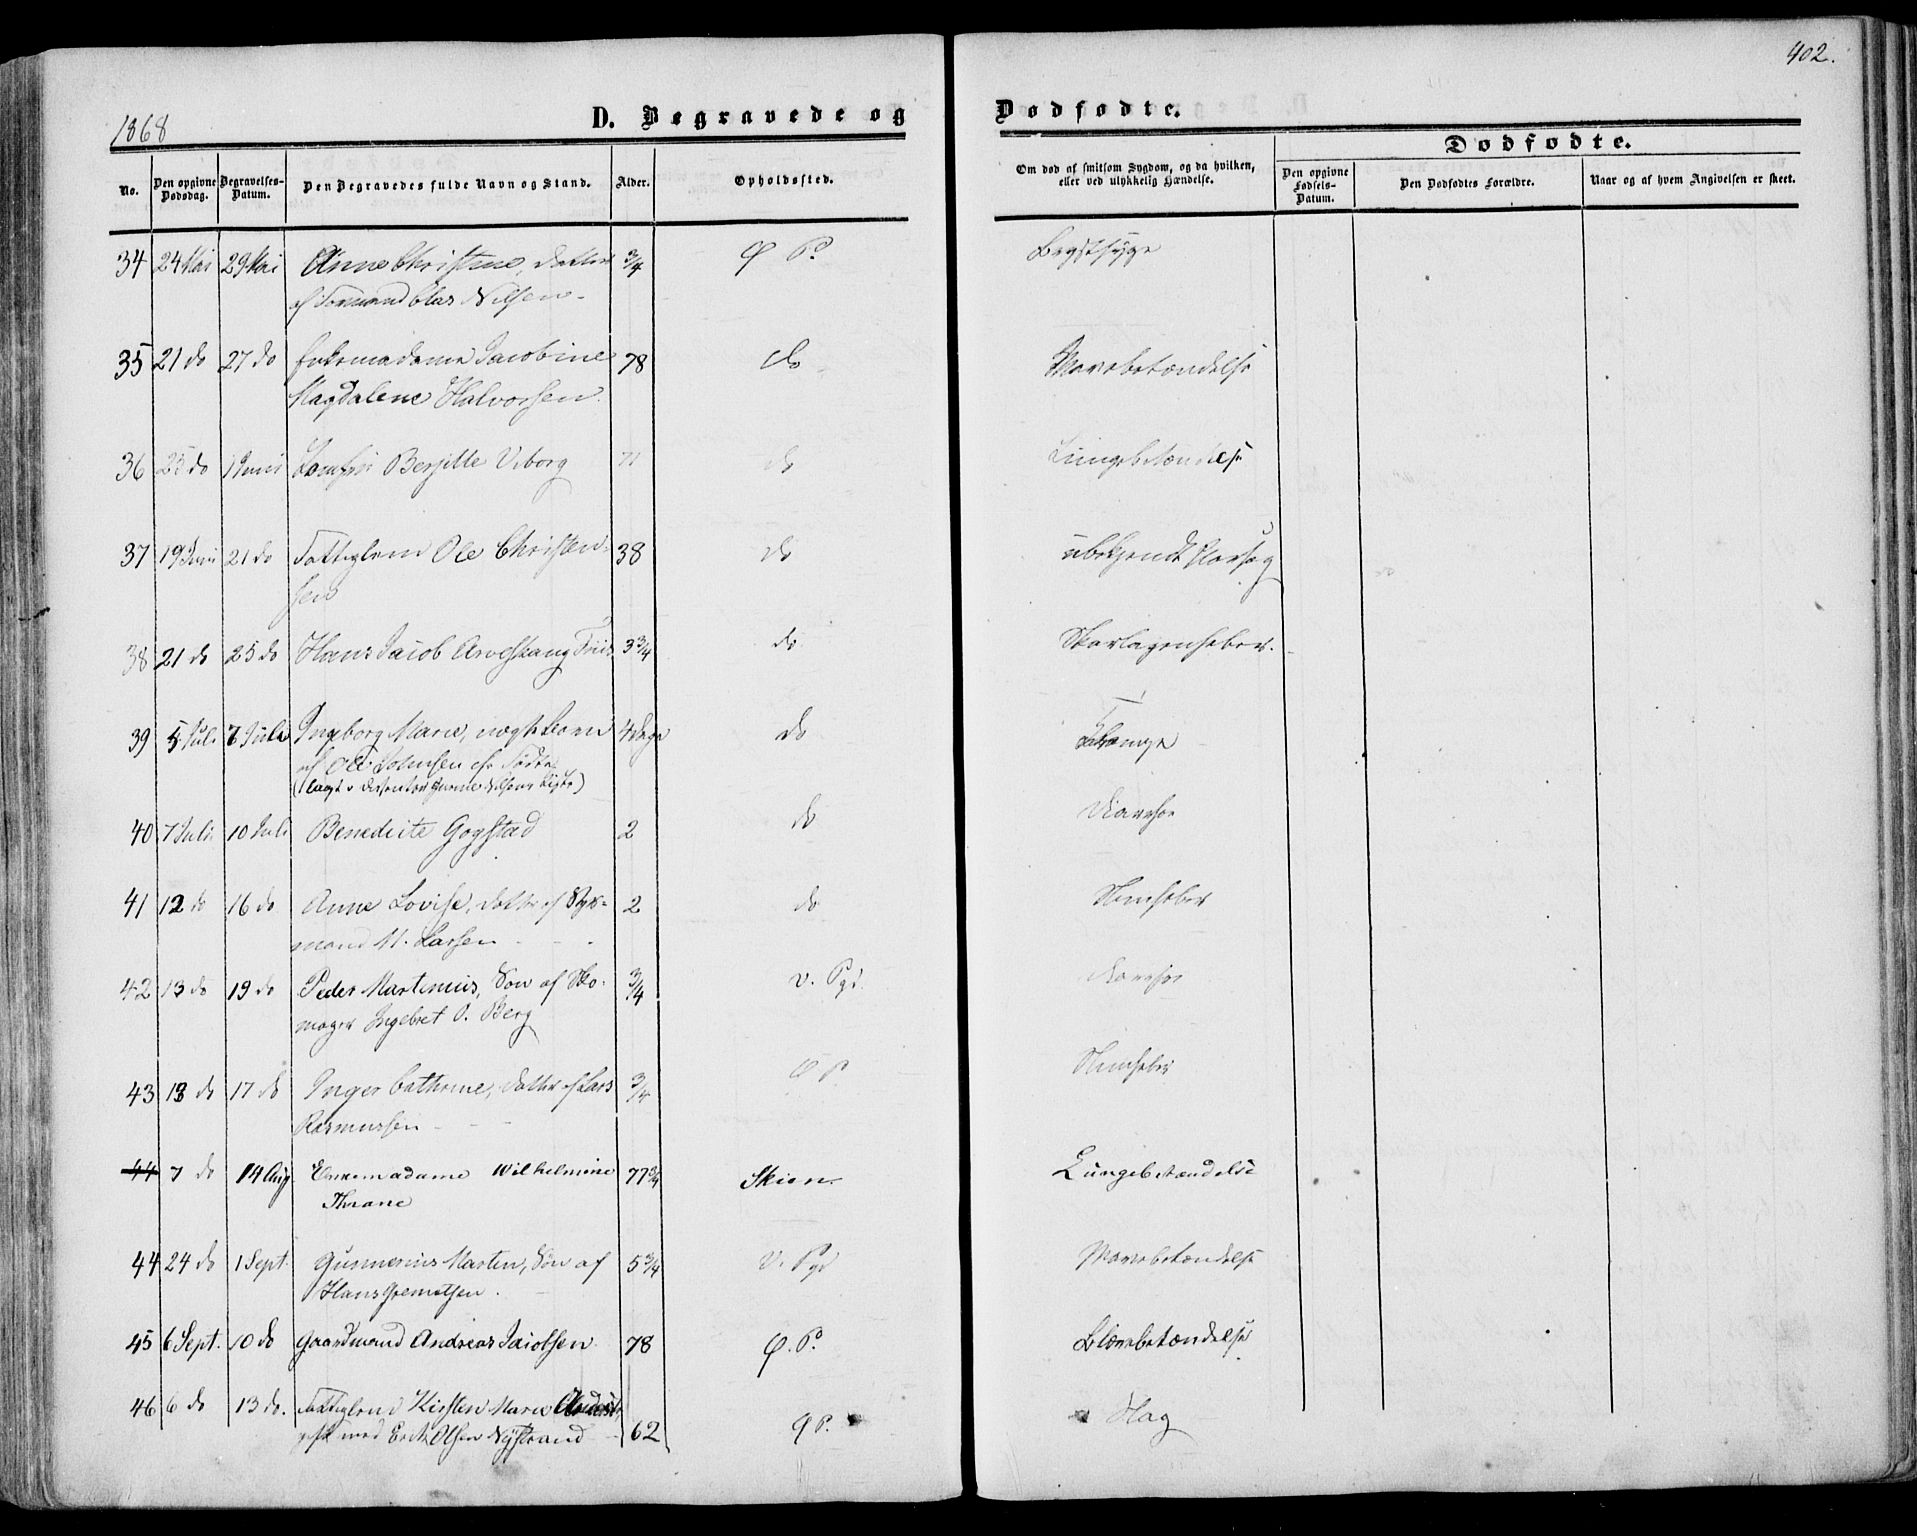 402.
1868
D. Begravede og Dødfødte.
Dødfødte.
No.
Den opgivne Dødsdag.
Begravelses-Datum.
Den Begravedes fulde Navn og Stand.
Alder.
Opholdssted.
Om død af smitsom Sygdom, og da hvilken, eller ved ulykkelig Hændelse.
Den opgivne Fødsels-Datum.
Den Dødfødtes Forældre.
Naar og af hvem Angivelsen er skeet.
34 24 Mai 29 Mai Anne Christine, Datter 3/4 Ø P. Brystsyge
af Tømmermand Nilsen
35 21 do 27 do Enkemadame Jacobine 78 do Mavebetændelse
Magdalene Halvorsen.
36 25 do 1 Juni Jomfru Berjitte Viborg 71 do Lungebetændelse
37 19 Juni 21 do Fattiglem Ole Christen- 38 do ubekjendt
sen
38 21 do 25 do Hans Jacob Friis 3 3/4 do Skarlagensfeber.
39 5 Juli 7 Juli Ingeborg Marie, uægte Barn 4 Dage do
af Ole Johnsen
40 7 Juli 10 Juli Benedicte Gogstad 2 do Diarrhoe
41 12 do 16 do Anne Lovise, Datter af Styr- 2 do
mand M. Larsen
42 13 do 19 do Peder Martinius, Søn af Sko- 3/4 V. Pgd. Diarrhoe
mager Ingebret O. Berg
43 13 do 17 do Inger Cathrine, Datter af Lars 3/4 Ø P.
Rasmussen
44 7 do 14 Aug Enkemadame Wilhelmine 77 3/4 Skien Lungebetændelse
Thrane
44 24 do 1 Sept. Gunnerius Marten, Søn af 5 3/4 V. Pgd Mavebetændelse
Hans
45 6 Sept. 10 do Gaardmand Andreas Jacobsen 78 Ø. P. Blærebetændelse
46 6 do 13 do. Fattiglem Kirsten Marie
gift med Erik Olsen Nystrand 62 Ø P. Slag